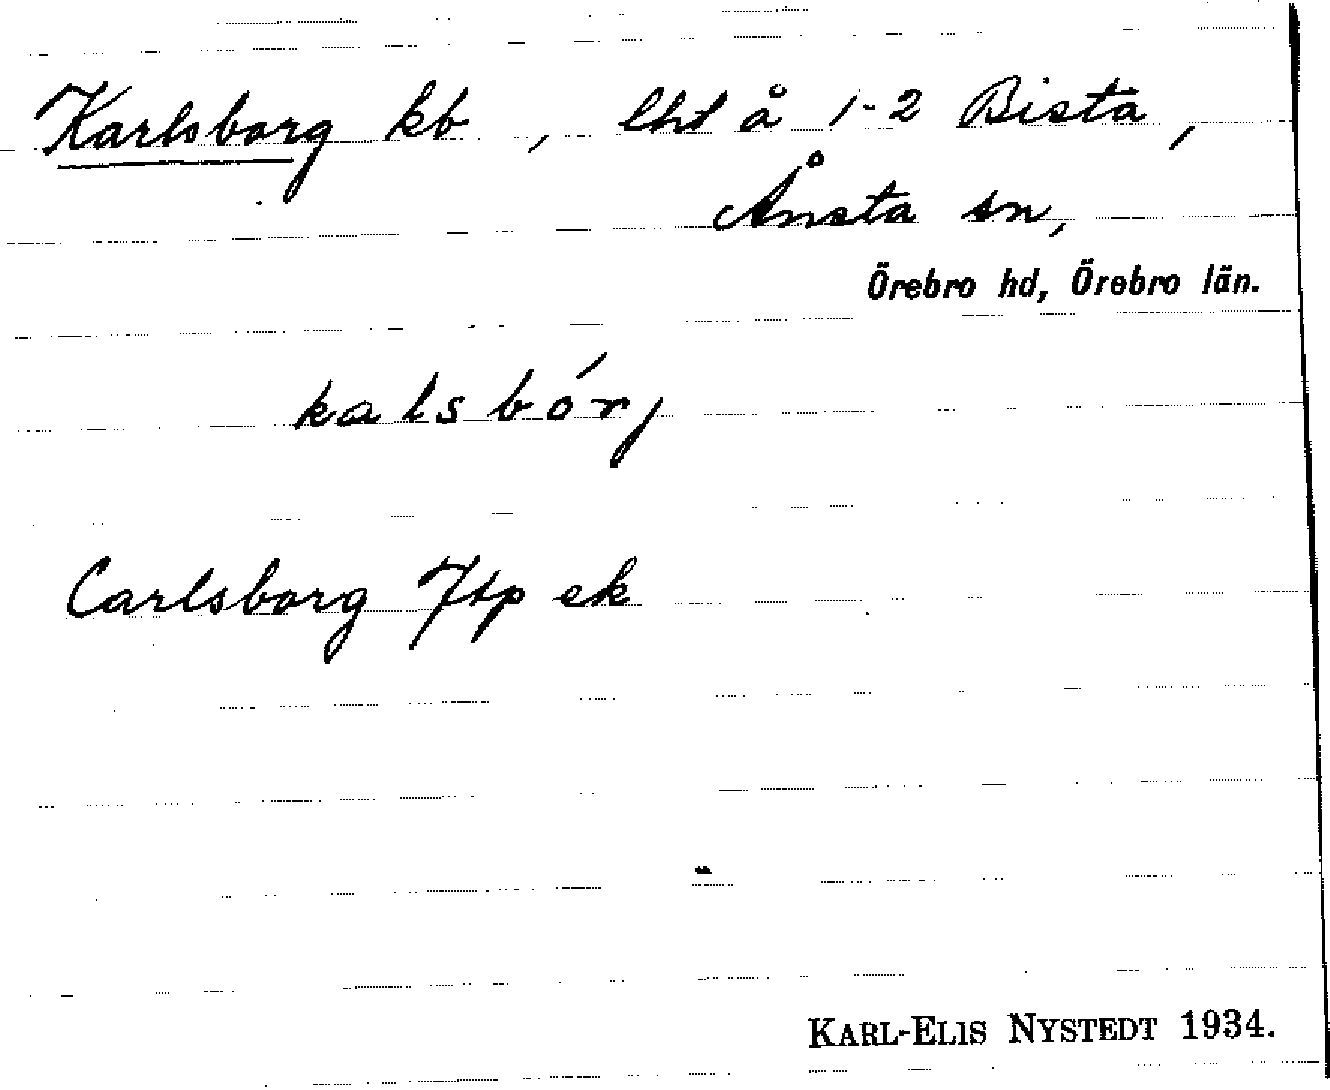 Karlsborg kb, lht å 1-2 Bista,
Ånsta sn,
Örebro hd, Örebro län.
kalsbórj
Carlsborg Jsp ek
KARL-ELIS NYSTEDT 1934.